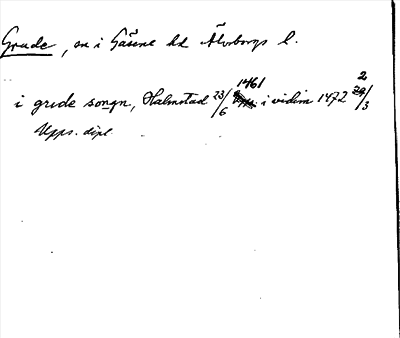 Grude, sn i Gäsene hd Älvborgs l.
i grude songn, Halmstad 23/6 1461 i vidim 1472 2/3
Upps. dipl